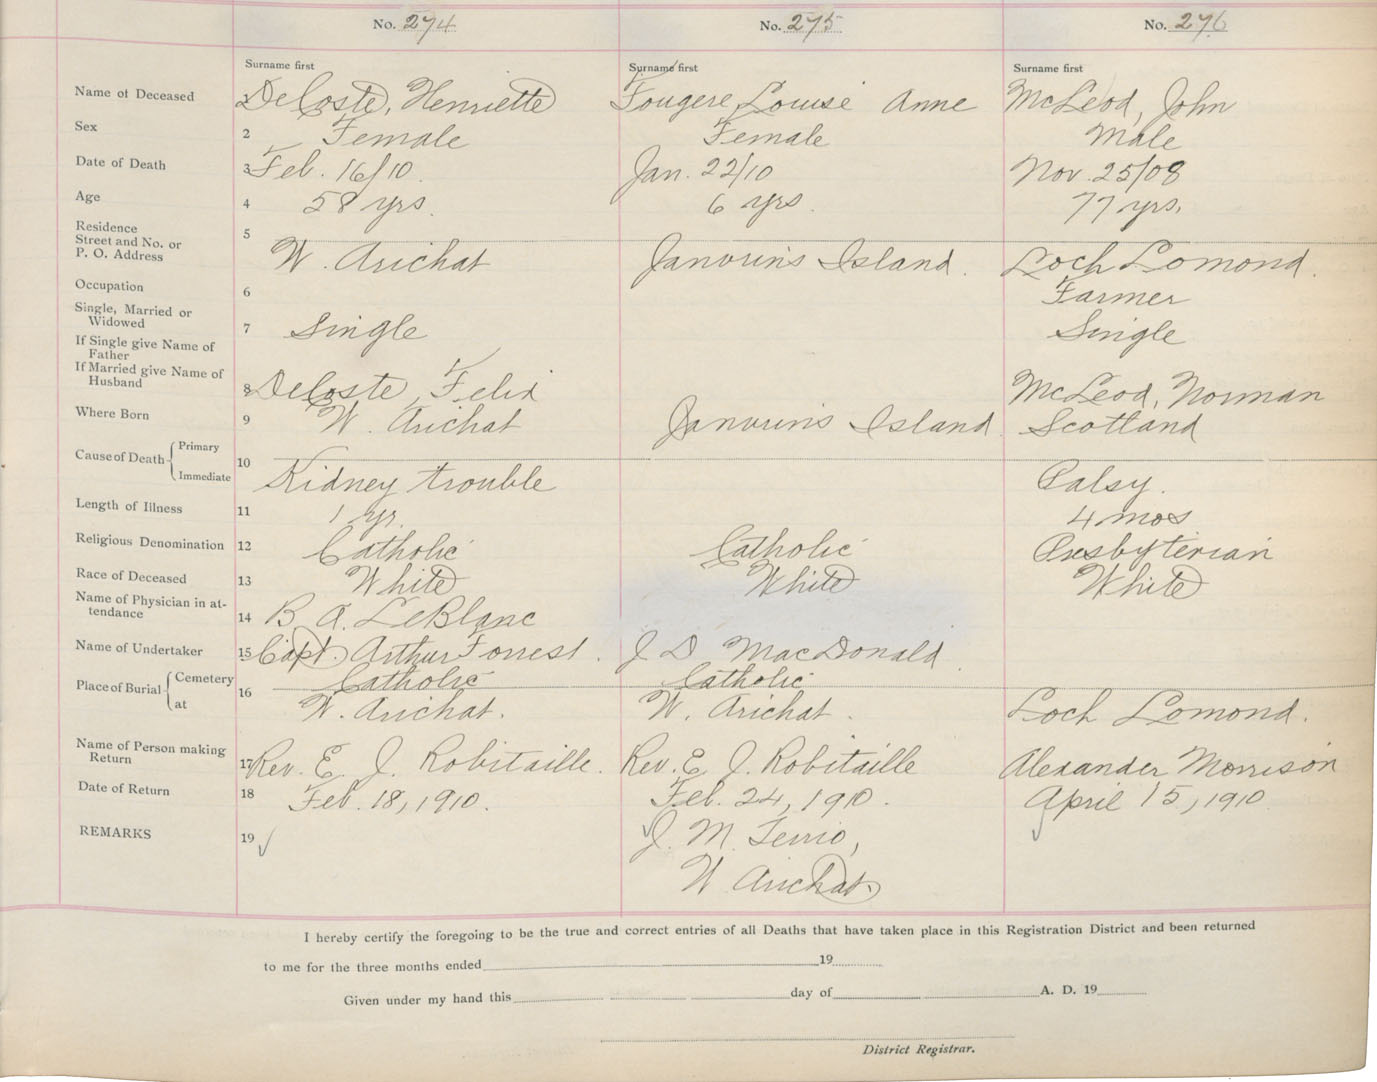 No. 274 No. 275 No. 276
Surname first Surname first Surname first
Name of Deceased DeCoste, Henriette Fougere, Louise Anne McLeod, John
Sex 2 Female Female Male
Date of Death 3 Feb. 16/10. Jan. 22/10 Nov. 25/08
Age 4 58 yrs. 6 yrs. 77 yrs.
Residence
Street and No. or 5
P. O. Address W. Arichat Janvrins Island. Loch Lomond.
Occupation 6 Farmer
Single, Married or
Widowed 7 Single Single
If Single give Name of
Father
If Married give Name of
Husband 8 DeCoste, Felix McLeod, Norman
Where Born 9 W. Arichat Janvrins Island Scotland
Cause of Death Primary 10
Immediate Kidney trouble Palsy.
Length of Illness 11 1 yr. 4 mos
Religious Denomination 12 Catholic Catholic Presbyterian
Race of Deceased 13 White White White
Name of Physician in at-
tendance 14 B. A. LeBlanc
Name of Undertaker 15 Capt. Arthur Forrest. J D MacDonald.
Place of Burial Cemetery 16 Catholic Catholic
at W. Arichat. W. Arichat. Loch Lomond.
Name of Person making
Return 17 Rev. E. J. Robitaille. Rev. E. J. Robitaille Alexander Morrison
Date of Return 18 Feb. 18, 1910. Feb. 24, 1910. April 15, 1910.
REMARKS 19 ✓ ✓ J. M. Terrio, ✓
W Arichat.
I hereby certify the foregoing to be the true and correct entries of all Deaths that have taken place in this Registration District and been returned
to me for the three months ended 19
Given under my hand this day of A. D. 19
District Registrar.